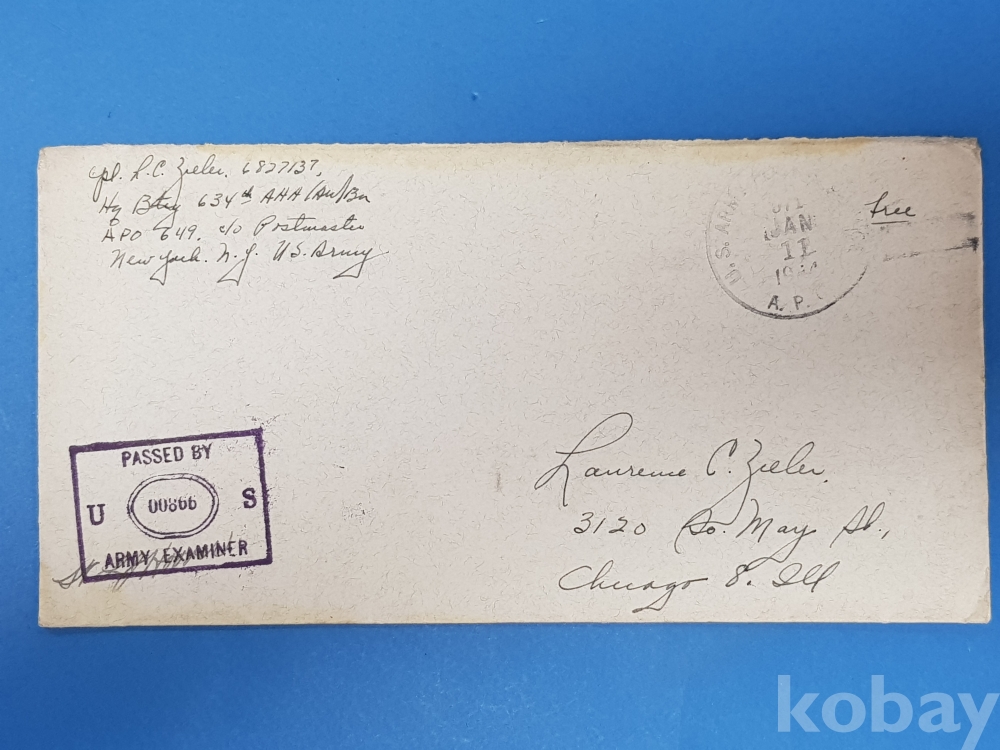 Cpl. L. C. Zieler. 6827137,
Hq Btry 634th AAA (AW) Bn
APO 649. c/o Postmaster
New York. N.Y. US. Army
U.S. AR
JAN
11
A. P.
Free
PASSED BY
U 00866 S
ARMY EXAMINER
Laurence C. Zieler,
3120 So. May St.,
Chicago 8. Ill
kobay